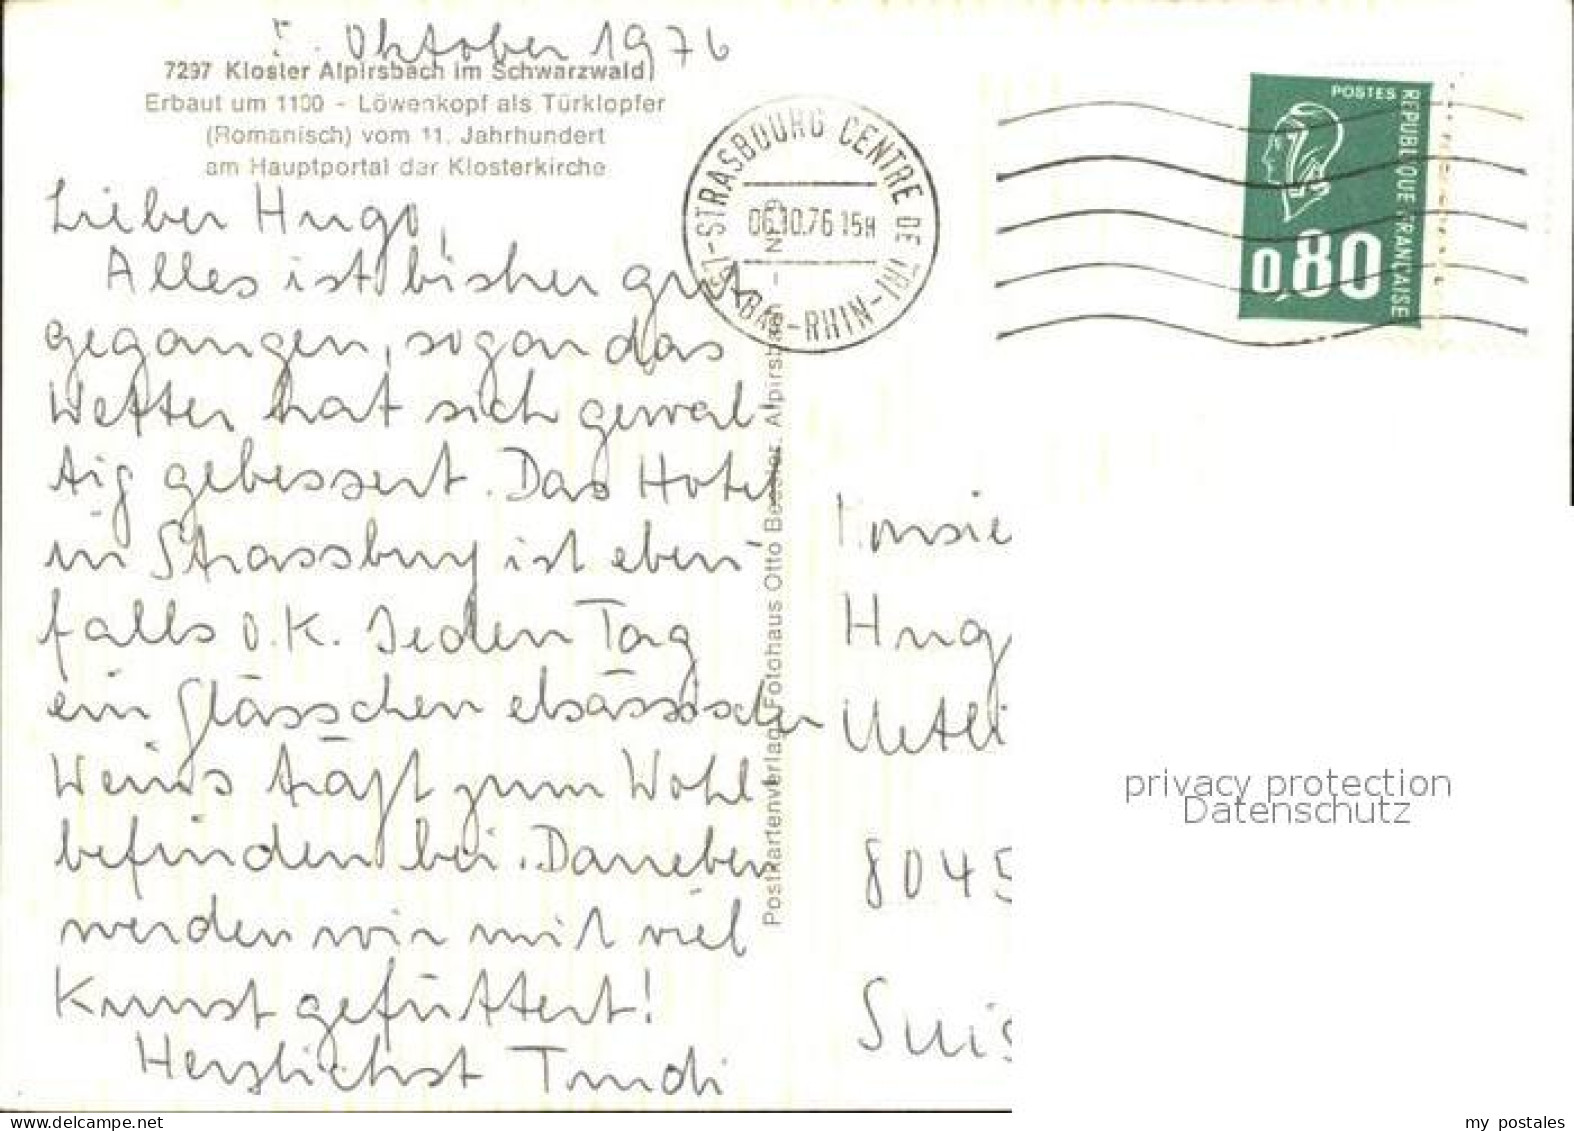 5. Oktober 1976
7297 Kloster Alpirsbach im Schwarzwald
Erbaut um 1100 - Löwenkopf als Türklopfer
(Romanisch) vom 11. Jahrhundert
am Hauptportal der Klosterkirche
Lieber Hugo,
Alles ist bisher gut
gegangen, sogar das
Wetter hat sich gewal-
tig gebessert. Das Hotel
in Strassburg ist eben-
falls O.K. Jeden Tag
ein Glässchen elsässischen
Weins trägt zum Wohl-
befinden bei. Daneben
werden wir mit viel
Kunst gefüttert!
Herzlichst Trudi
Postkartenverlag Fotohaus Otto Alpirsbach - Nr. 9
67-STRASBOURG CENTRE DE TRI-BAS-RHIN-
06.10.76 15H
POSTES
REPUBLIQUE FRANÇAISE
0,80
Monsie
Hug
Uetli
8045
Suis
privacy protection
Datenschutz
my postales